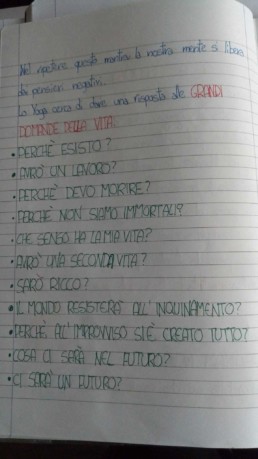 Nel ripetere questo mantra la nostra mente si libera
dai pensieri negativi.
Lo Yoga cerca di dare una risposta alle GRANDI
DOMANDE DELLA VITA:
• PERCHÈ ESISTO?
• AVRÒ UN LAVORO?
• PERCHÈ DEVO MORIRE?
• PERCHÈ NON SIAMO IMMORTALI?
• CHE SENSO HA LA MIA VITA?
• AVRÒ UNA SECONDA VITA?
• SARÒ RICCO?
• IL MONDO RESISTERÀ ALL'INQUINAMENTO?
• PERCHÈ ALL'IMPROVVISO SI È CREATO TUTTO?
• COSA CI SARÀ NEL FUTURO?
• CI SARÀ UN FUTURO?